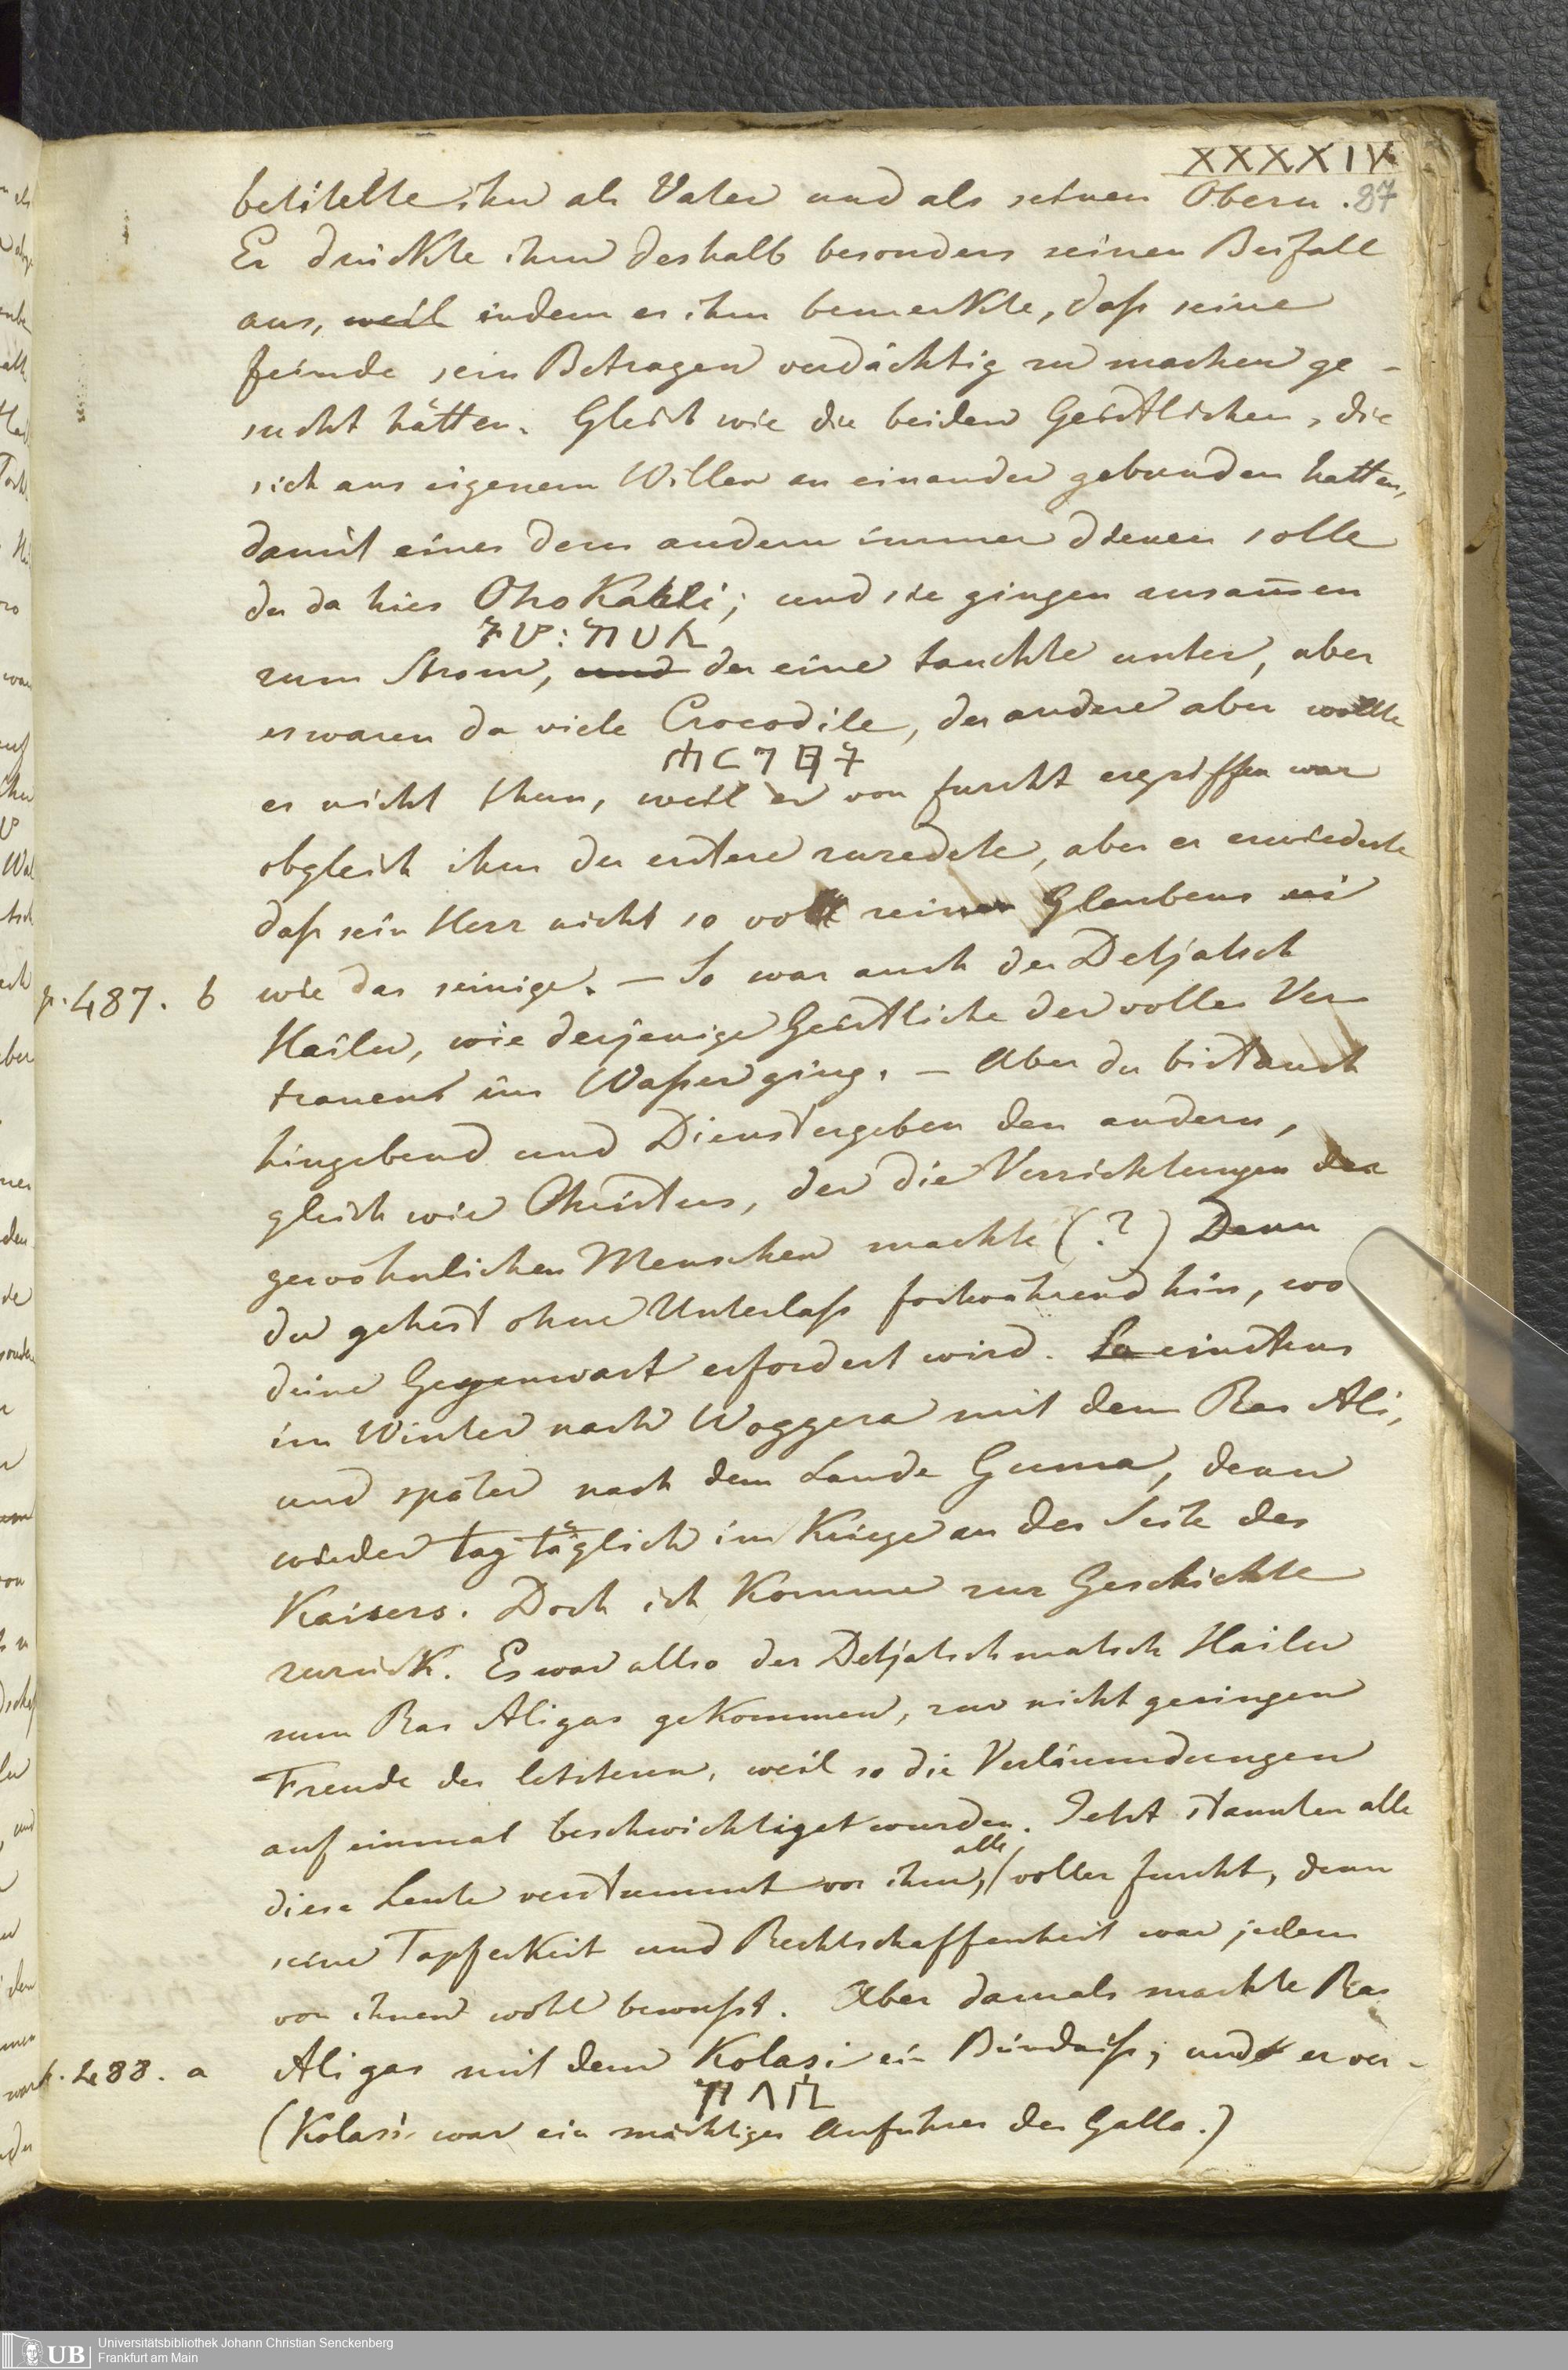 XXXXIV
betitelte ihn als Vater und als seinen Obern. 87
Er drückte ihm deshalb besonders seinen Beifall
aus, weil indem er ihm bemerkte, daß seine
feinde sein Betragen verdächtig zu machen ge-
sucht hätten. Gleich wie die beiden Geistlichen, die
sich aus eigenem Willen an einander gebunden hatten,
damit einer dem andern immer dienen solle
der da hies Oho Kahli; und sie gingen zusam̄en
zum Strom, und der eine tauchte unter, aber
es waren da viele Crocodile, der andere aber wollte
es nicht thun, weil er von furcht ergriffen war
obgleich ihm der erstere zuredete, aber er erwiederte
daß sein Herr nicht so voll seines Glaubens sei
p. 487. b wie das seinige. — So war auch der Detjatsch
Hailu, wie derjenige Geistliche der voller Ver-
trauens ins Waßer ging. — Aber du bist auch
hingebend und Dienstergeben den andern,
gleich wie Christus, der die Verrichtungen der
gewöhnlichen Menschen machte (?) Denn
du gehest ohne Unterlaß fortwährend hin, wo
deine Gegenwart erfordert wird. So einstens
im Winter nach Woggera mit dem Ras Ali,
und später nach dem Lande Guma, denn
wieder tag täglich im Kriege an der Seite des
Kaisers. Doch ich Komme zur Geschichte
zurück. Es war allso der Detjatschmatsch Hailu
zum Ras Aligas geKommen, zur nicht geringen
Freude des letztern, weil so die Verläumdungen
auf einmal beschwichtiget wurden. Jetzt stannten alle
diese Leute verstummt vor ihm, alle voller furcht, denn
seine TapferKeit und Rechtschaffenheit war jedem
von ihnen wohl bewußt. Aber damals machte Ras
p. 488. a Aligas mit dem Kolasi ein Bündniß; und er ver-
(Kolasi war ein mächtiger Anführer der Galla.)
Universitätsbibliothek Johann Christian Senckenberg
Frankfurt am Main
UB